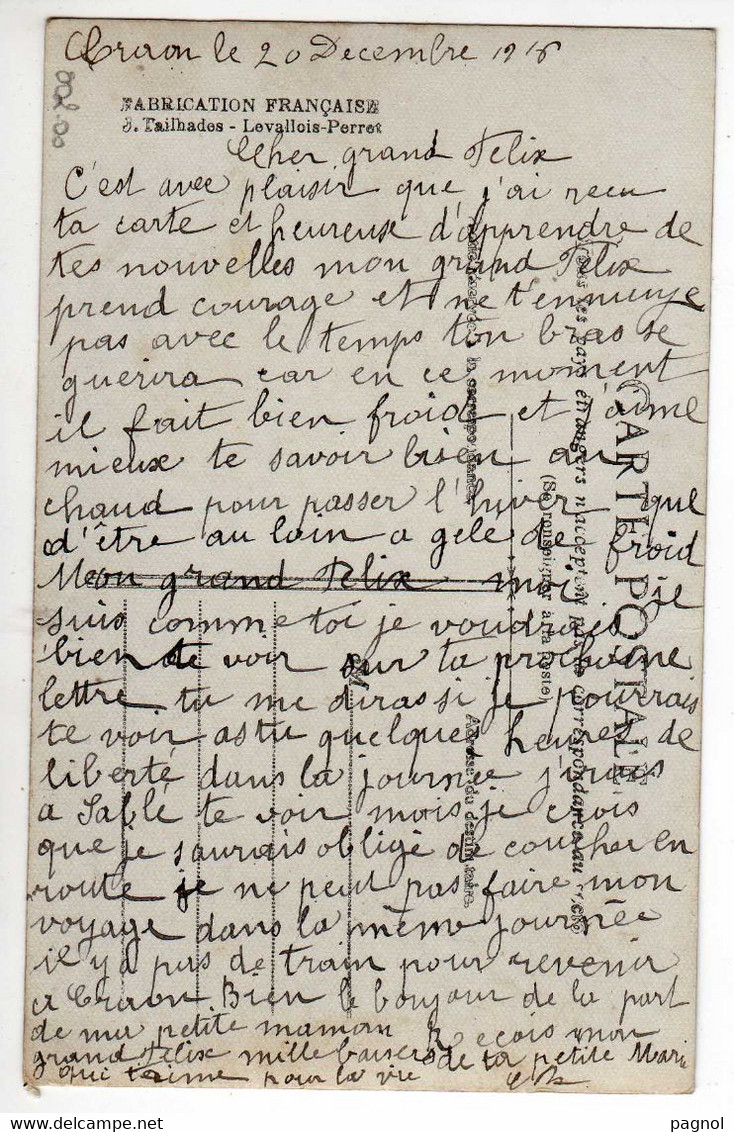 Craon le 20 Decembre 1916
FABRICATION FRANÇAISE
J. Tailhades - Levallois-Perret
Cher grand Felix
C'est avec plaisir que j'ai recu
ta carte et heureuse d'apprendre de
tes nouvelles mon grand Felix
prend courage et ne t'ennuye
pas avec le temps ton bras se
guerira car en ce moment
il fait bien froid et j'aime
mieux te savoir bien au
chaud pour passer l'hiver que
d'être au loin a gele de froid
Mon grand Felix moi je
suis comme toi je voudrais
bien te voir sur ta prochaine
lettre tu me diras si je pourrais
te voir as tu quelques heures de
liberté dans la journee j'irais
a Sablé te voir mais je crois
que je saurais obligé de coucher en
route je ne peut pas faire mon
voyage dans la même journée
il y a pas de train pour revenir
a Craon. Bien le bonjour de la part
de ma petite maman Recois mon
grand Felix mille baisers de ta petite Marie
qui t'aime pour la vie
CARTE POSTALE
Tous les pays étrangers n'acceptent pas la correspondance au verso
(Se renseigner à la Poste)
la correspondance
Adresse du destinataire
M
pagnol